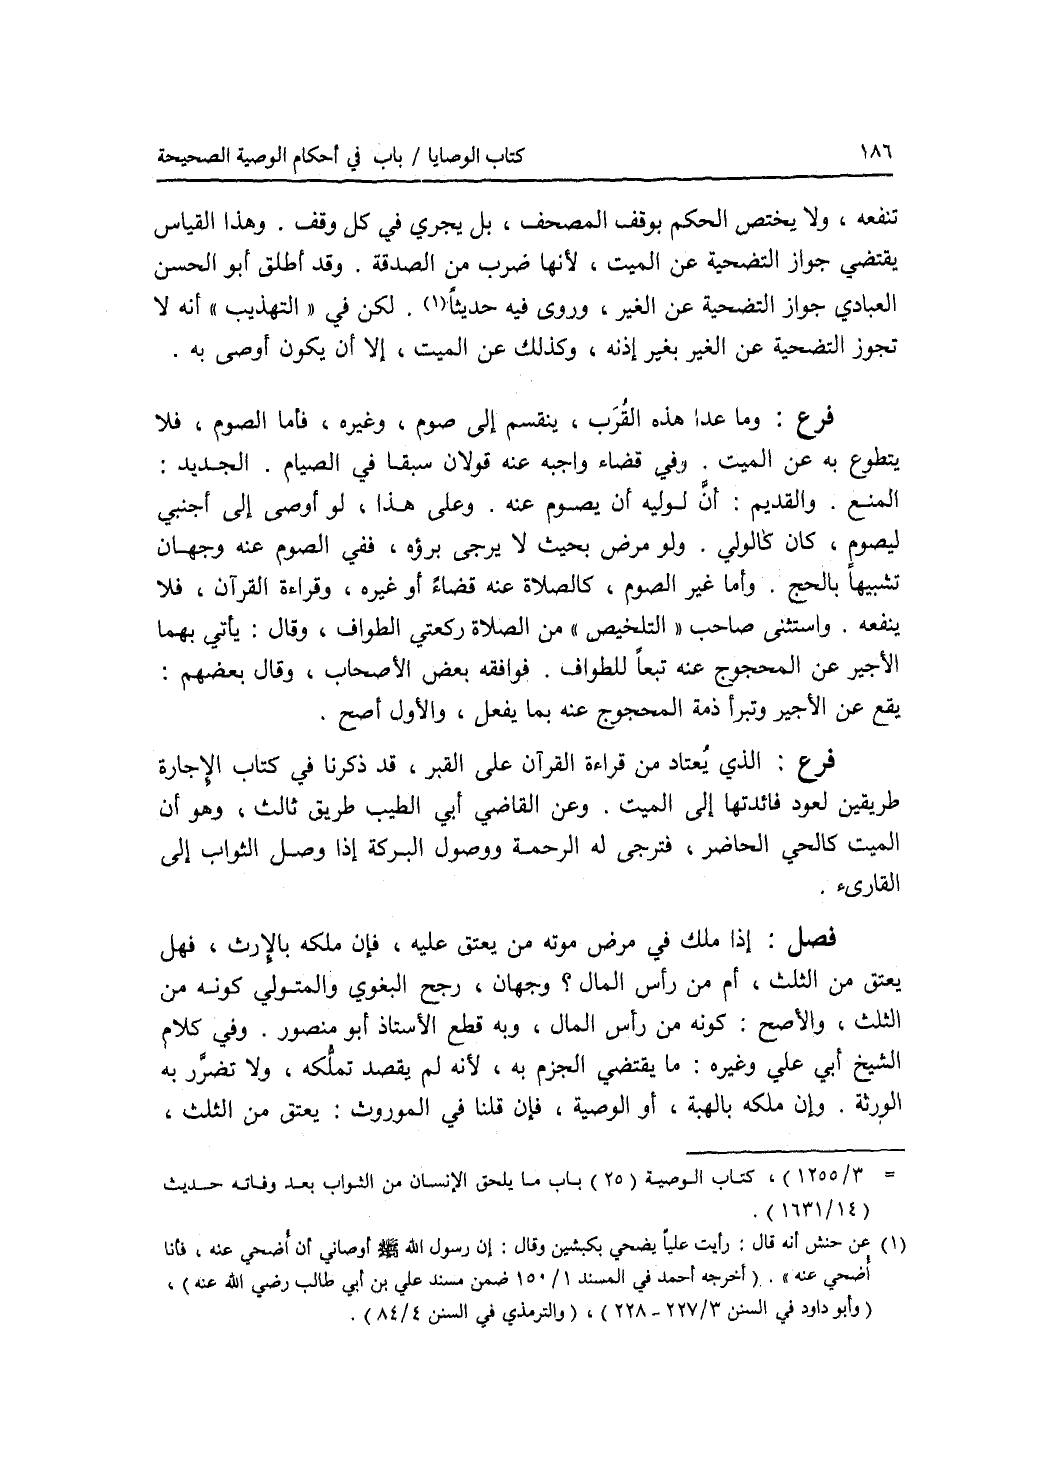 ١٨٦ كتاب الوصايا / باب في أحكام الوصية الصحيحة
تنفعه ، ولا يختص الحكم بوقف المصحف ، بل يجري في كل وقف . وهذا القياس
يقتضي جواز التضحية عن الميت ، لأنها ضرب من الصدقة . وقد أطلق أبو الحسن
العبادي جواز التضحية عن الغير ، وروى فيه حديثاً(١) . لكن في « التهذيب » أنه لا
تجوز التضحية عن الغير بغير إذنه ، وكذلك عن الميت ، إلا أن يكون أوصى به .
فرع : وما عدا هذه القُرَب ، ينقسم إلى صوم ، وغيره ، فأما الصوم ، فلا
يتطوع به عن الميت . وفي قضاء واجبه عنه قولان سبقا في الصيام . الجديد :
المنع . والقديم : أنَّ لوليه أن يصوم عنه . وعلى هذا ، لو أوصى إلى أجنبي
ليصوم ، كان كالولي . ولو مرض بحيث لا يرجى برؤه ، ففي الصوم عنه وجهان
تشبيهاً بالحج . وأما غير الصوم ، كالصلاة عنه قضاءً أو غيره ، وقراءة القرآن ، فلا
ينفعه . واستثنى صاحب « التلخيص » من الصلاة ركعتي الطواف ، وقال : يأتي بهما
الأجير عن المحجوج عنه تبعاً للطواف . فوافقه بعض الأصحاب ، وقال بعضهم :
يقع عن الأجير وتبرأ ذمة المحجوج عنه بما يفعل ، والأول أصح .
فرع : الذي يُعتاد من قراءة القرآن على القبر ، قد ذكرنا في كتاب الإِجارة
طريقين لعود فائدتها إلى الميت . وعن القاضي أبي الطيب طريق ثالث ، وهو أن
الميت كالحي الحاضر ، فترجى له الرحمة ووصول البركة إذا وصل الثواب إلى
القارىء .
فصل : إذا ملك في مرض موته من يعتق عليه ، فإن ملكه بالإِرث ، فهل
يعتق من الثلث ، أم من رأس المال ؟ وجهان ، رجح البغوي والمتولي كونه من
الثلث ، والأصح : كونه من رأس المال ، وبه قطع الأستاذ أبو منصور . وفي كلام
الشيخ أبي علي وغيره : ما يقتضي الجزم به ، لأنه لم يقصد تملُّكه ، ولا تضرَّر به
الورثة . وإن ملكه بالهبة ، أو الوصية ، فإن قلنا في الموروث : يعتق من الثلث ،
= ١٢٥٥/٣ ) ، كتاب الوصية ( ٢٥ ) باب ما يلحق الإنسان من الثواب بعد وفاته حديث
( ١٦٣١/١٤ ) .
(١) عن حنش أنه قال : رأيت علياً يضحي بكبشين وقال : إن رسول الله ﷺ أوصاني أن أُضحي عنه ، فأنا
أُضحي عنه » . ( أخرجه أحمد في المسند ١٥٠/١ ضمن مسند علي بن أبي طالب رضي الله عنه ) ،
( وأبو داود في السنن ٢٢٧/٣ ـ ٢٢٨ ) ، ( والترمذي في السنن ٨٤/٤ ) .